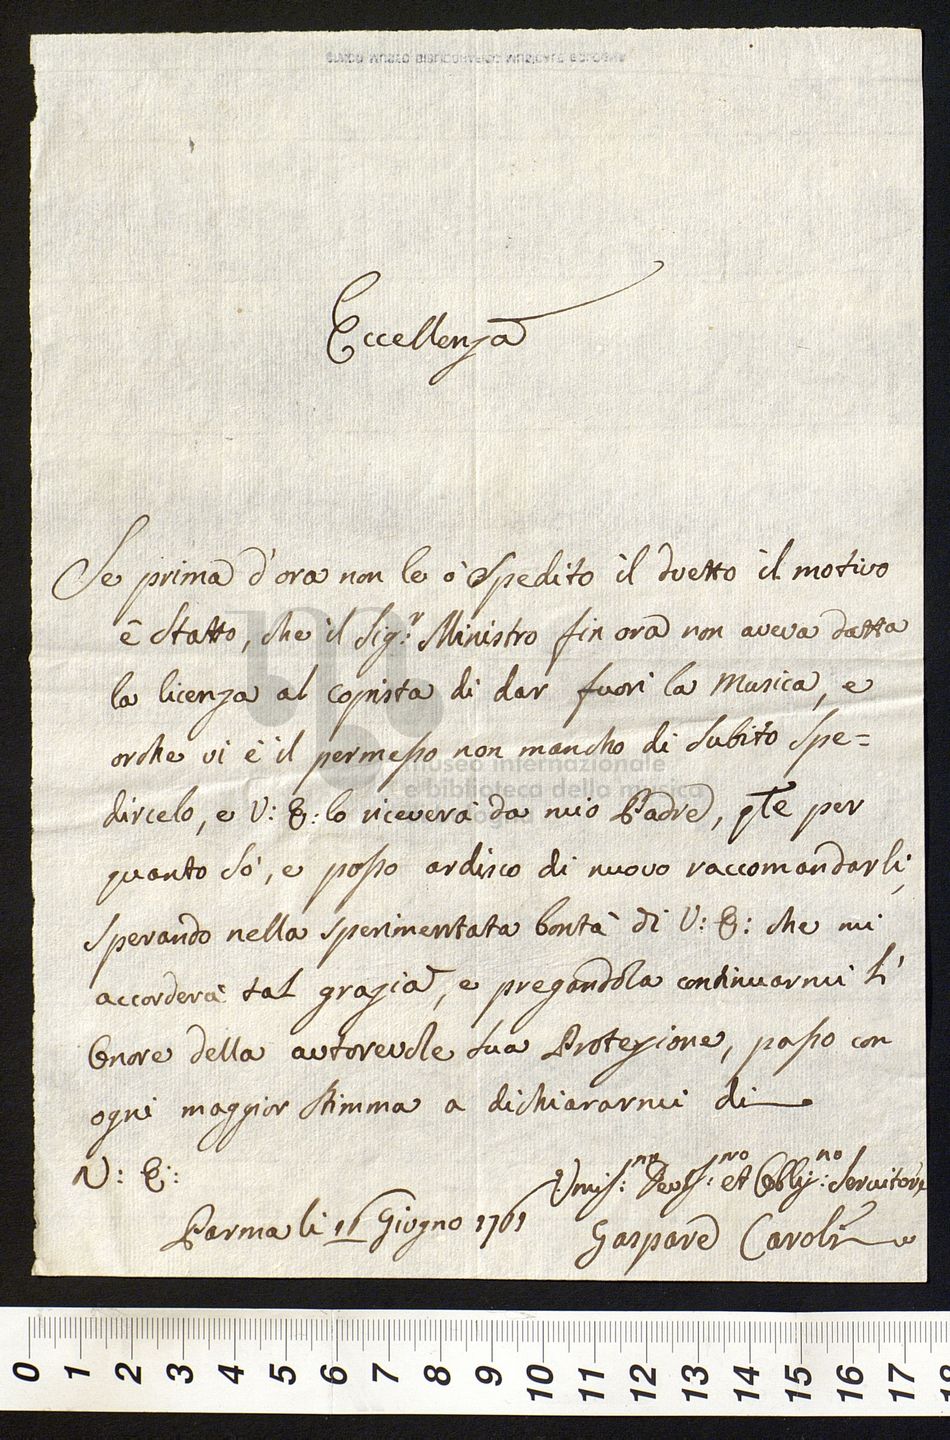 CIVICO MUSEO BIBLIOGRAFICO MUSICALE BOLOGNA
Eccellenza
Se prima d'ora non le ò Spedito il duetto il motivo
è Statto, che il Sig.r Ministro fin ora non aveva datta
la licenza al copista di dar fuori la Musica, e
orche vi è il permesso non mancho di Subito Spe=
dircelo, e V: E: lo riceverà da mio Padre, q.te per
quanto Sò, e posso ardisco di nuovo raccomandarli,
Sperando nella Sperimentata bontà di V: E: che mi
accorderà tal grazia, e pregandola continuarmi l'
Onore della autorevole Sua Protezione, passo con
ogni maggior Stimma a dichiararmi di
V: E:
Umis.mo Devs.mo et Obbli.mo Servitore
Parma li 16 Giugno 1761
Gaspare Caroli
museo internazionale
e biblioteca della musica
0 1 2 3 4 5 6 7 8 9 10 11 12 13 14 15 16 17 18